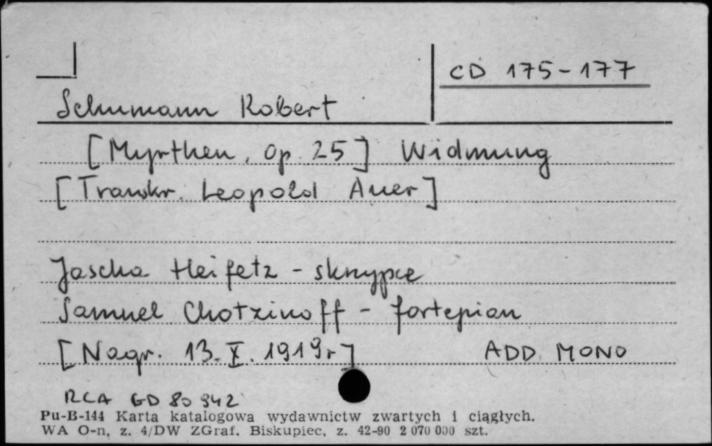 CD 175-177
Schumann Robert
[Myrthen, op. 25] Widmung
[Transkr. Leopold Auer]
Jascha Heifetz - skrzypce
Samuel Chotzinoff - fortepian
[Nagr. 13. X. 1919r] ADD MONO
RCA GD 80 942
Pu-B-144 Karta katalogowa wydawnictw zwartych i ciągłych.
WA O-n, z. 4/DW ZGraf. Biskupiec, z. 42-90 2 070 000 szt.